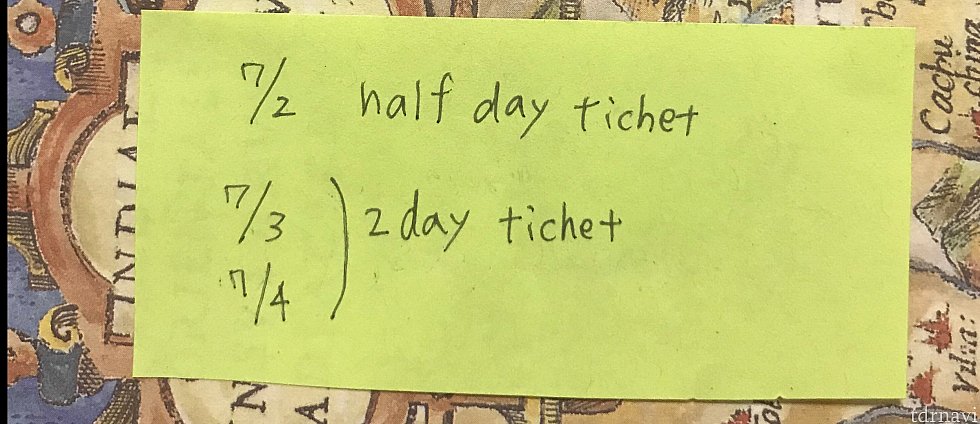 7/2 half day tichet
7/3
2 day tichet
7/4
INDIAE
Cachu
china
tdrnavi